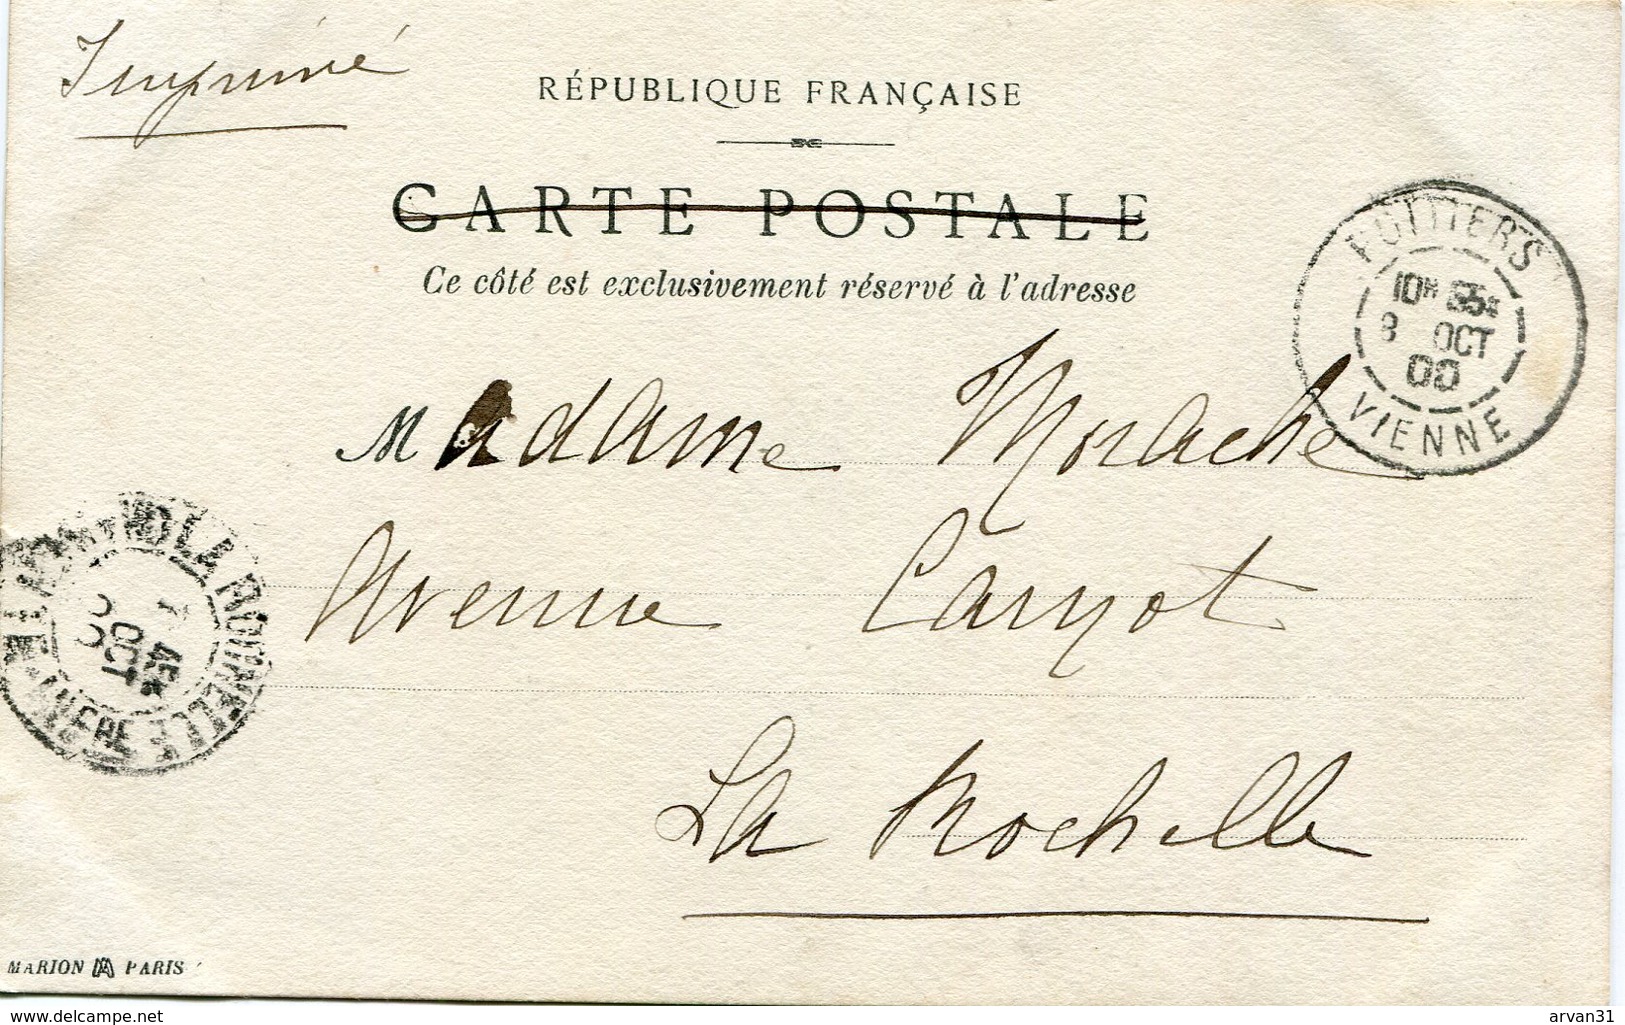 Imprimé
RÉPUBLIQUE FRANÇAISE
CARTE POSTALE
Ce côté est exclusivement réservé à l'adresse
POITIERS
10H 35M
8 OCT
00
VIENNE
Madame Morache
Avenue Carnot
LA ROCHELLE
OCT
INFRE
La Rochelle
MARION PARIS
www.delcampe.net
arvan31